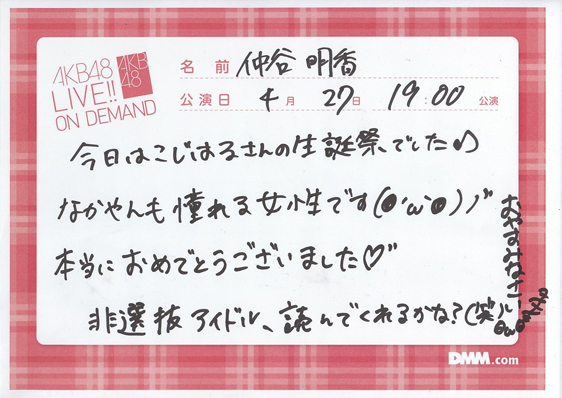 AKB48
LIVE!!
ON DEMAND
AKB
48
名前 仲谷明香
公演日 4月 27日 19:00 公演
今日はこじはるさんの生誕祭でした♪
なかやんも憧れる女性です(●'ω'●)ノ"
本当におめでとうございました♡"
非選抜アイドル、読んでくれるかな?(笑)
おやすみなさい
DMM.com